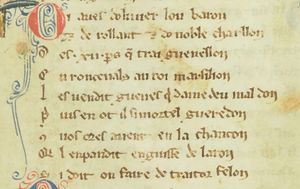 Oi aues d oliuier lou baron
& de rollant & do noble charllon
es .xii. p̄s q̄ trai guenellon
n ronceuals au roi marsilion
l es uendit guenes q̄ damedeu mal don
puis en ot il si mortel gueredon
nos cres auent en la chancon
l en pandit en guisse de laron
i doit on faire de traitor felon